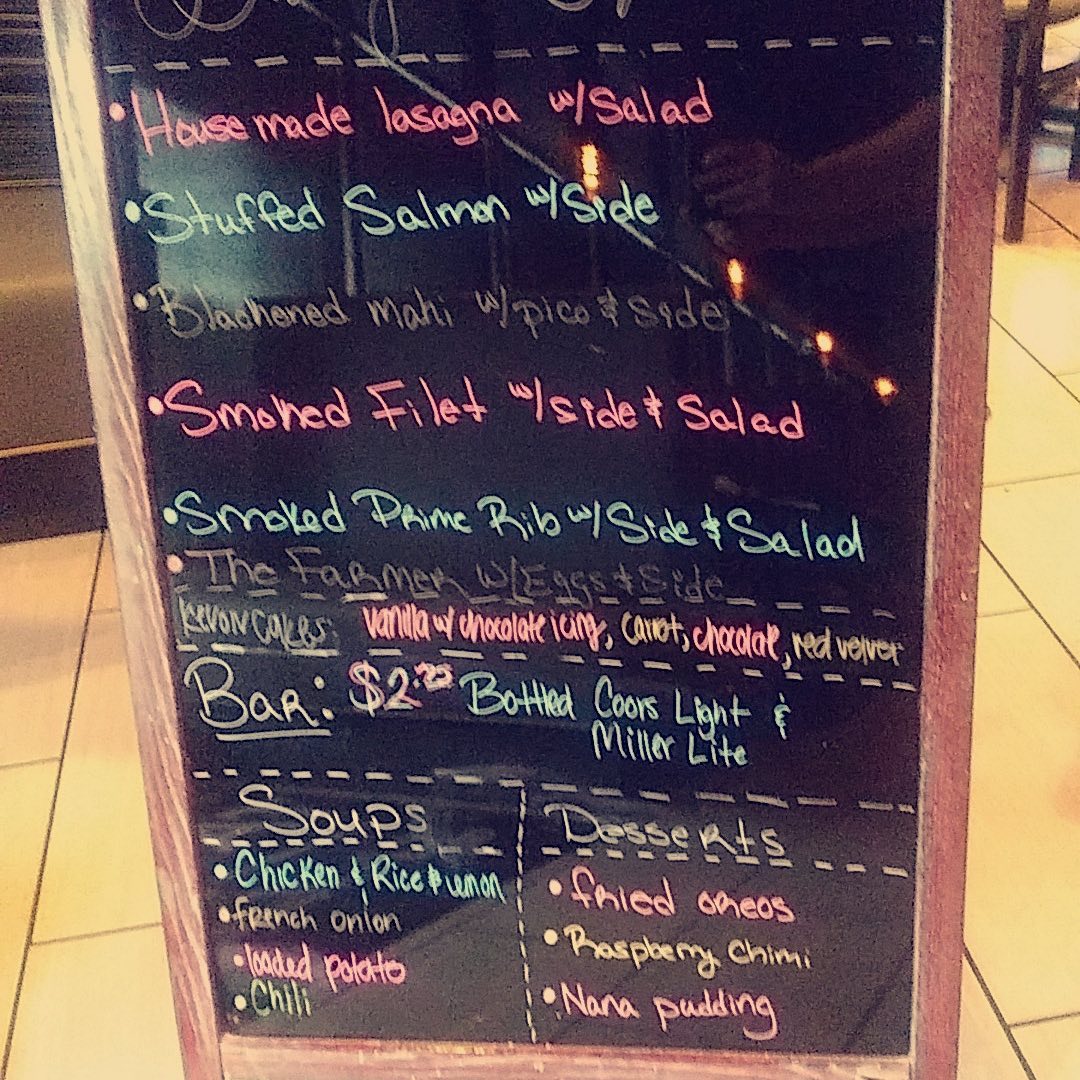 • Housemade lasagna w/Salad
• Stuffed Salmon w/Side
• Blackened mahi w/pico & side
• Smoked Filet w/side & Salad
• Smoked Prime Rib w/Side & Salad
• The Farmer w/Eggs & Side
Kevon Cakes: vanilla w/ chocolate icing, carrot, chocolate, red velvet
Bar: $2.25 Bottled Coors Light &
Miller Lite
Soups
• Chicken & Rice & lemon
• french onion
• loaded potato
• Chili
Desserts
• fried oreos
• Raspberry Chimi
• Nana pudding